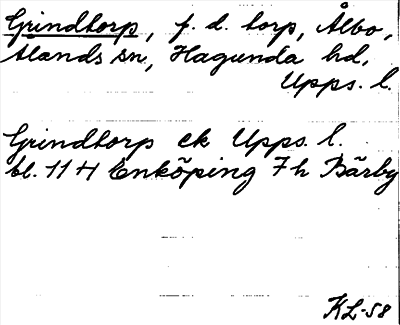 Grindtorp, f. d. torp, Ålbo,
Alands sn, Hagunda hd,
Upps. l.
Grindtorp ek Upps. l.
bl. 11 H Enköping 7 h Bärby
KL-58